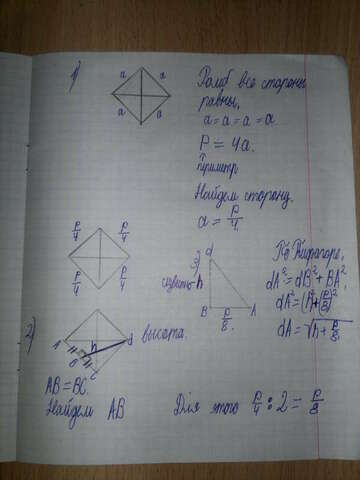 1)
a a
a a
Ромб все стороны
равны,
a = a = a = a
P = 4a.
Периметр
Найдем сторону.
a = P/4
P/4 P/4
P/4 P/4
3)
d
h
B P/8. A
По Пифагору,
dA² = dB² + BA²,
dA² = h² + (P/8)²
dA = √h + P/8
2)
A h d
B
C
высота.
AB = BC.
Найдем AB
Для этого P/4 : 2 = P/8